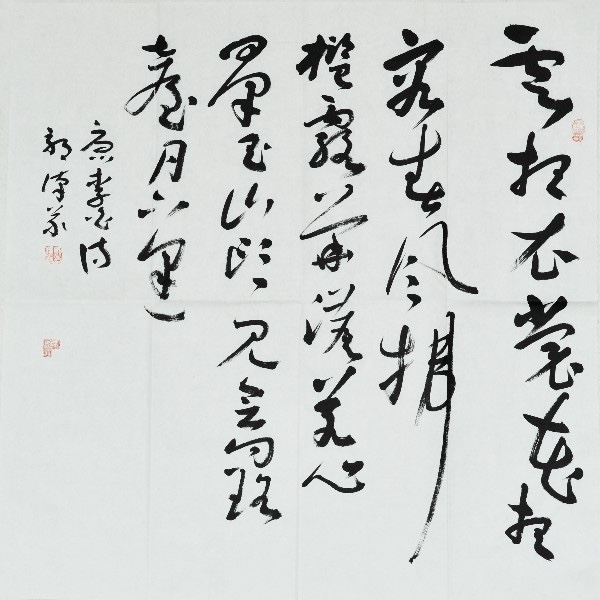 雲想衣裳花想
容春風拂
檻露華濃若非
羣玉山頭見會向瑶
臺月下逢
唐李白诗